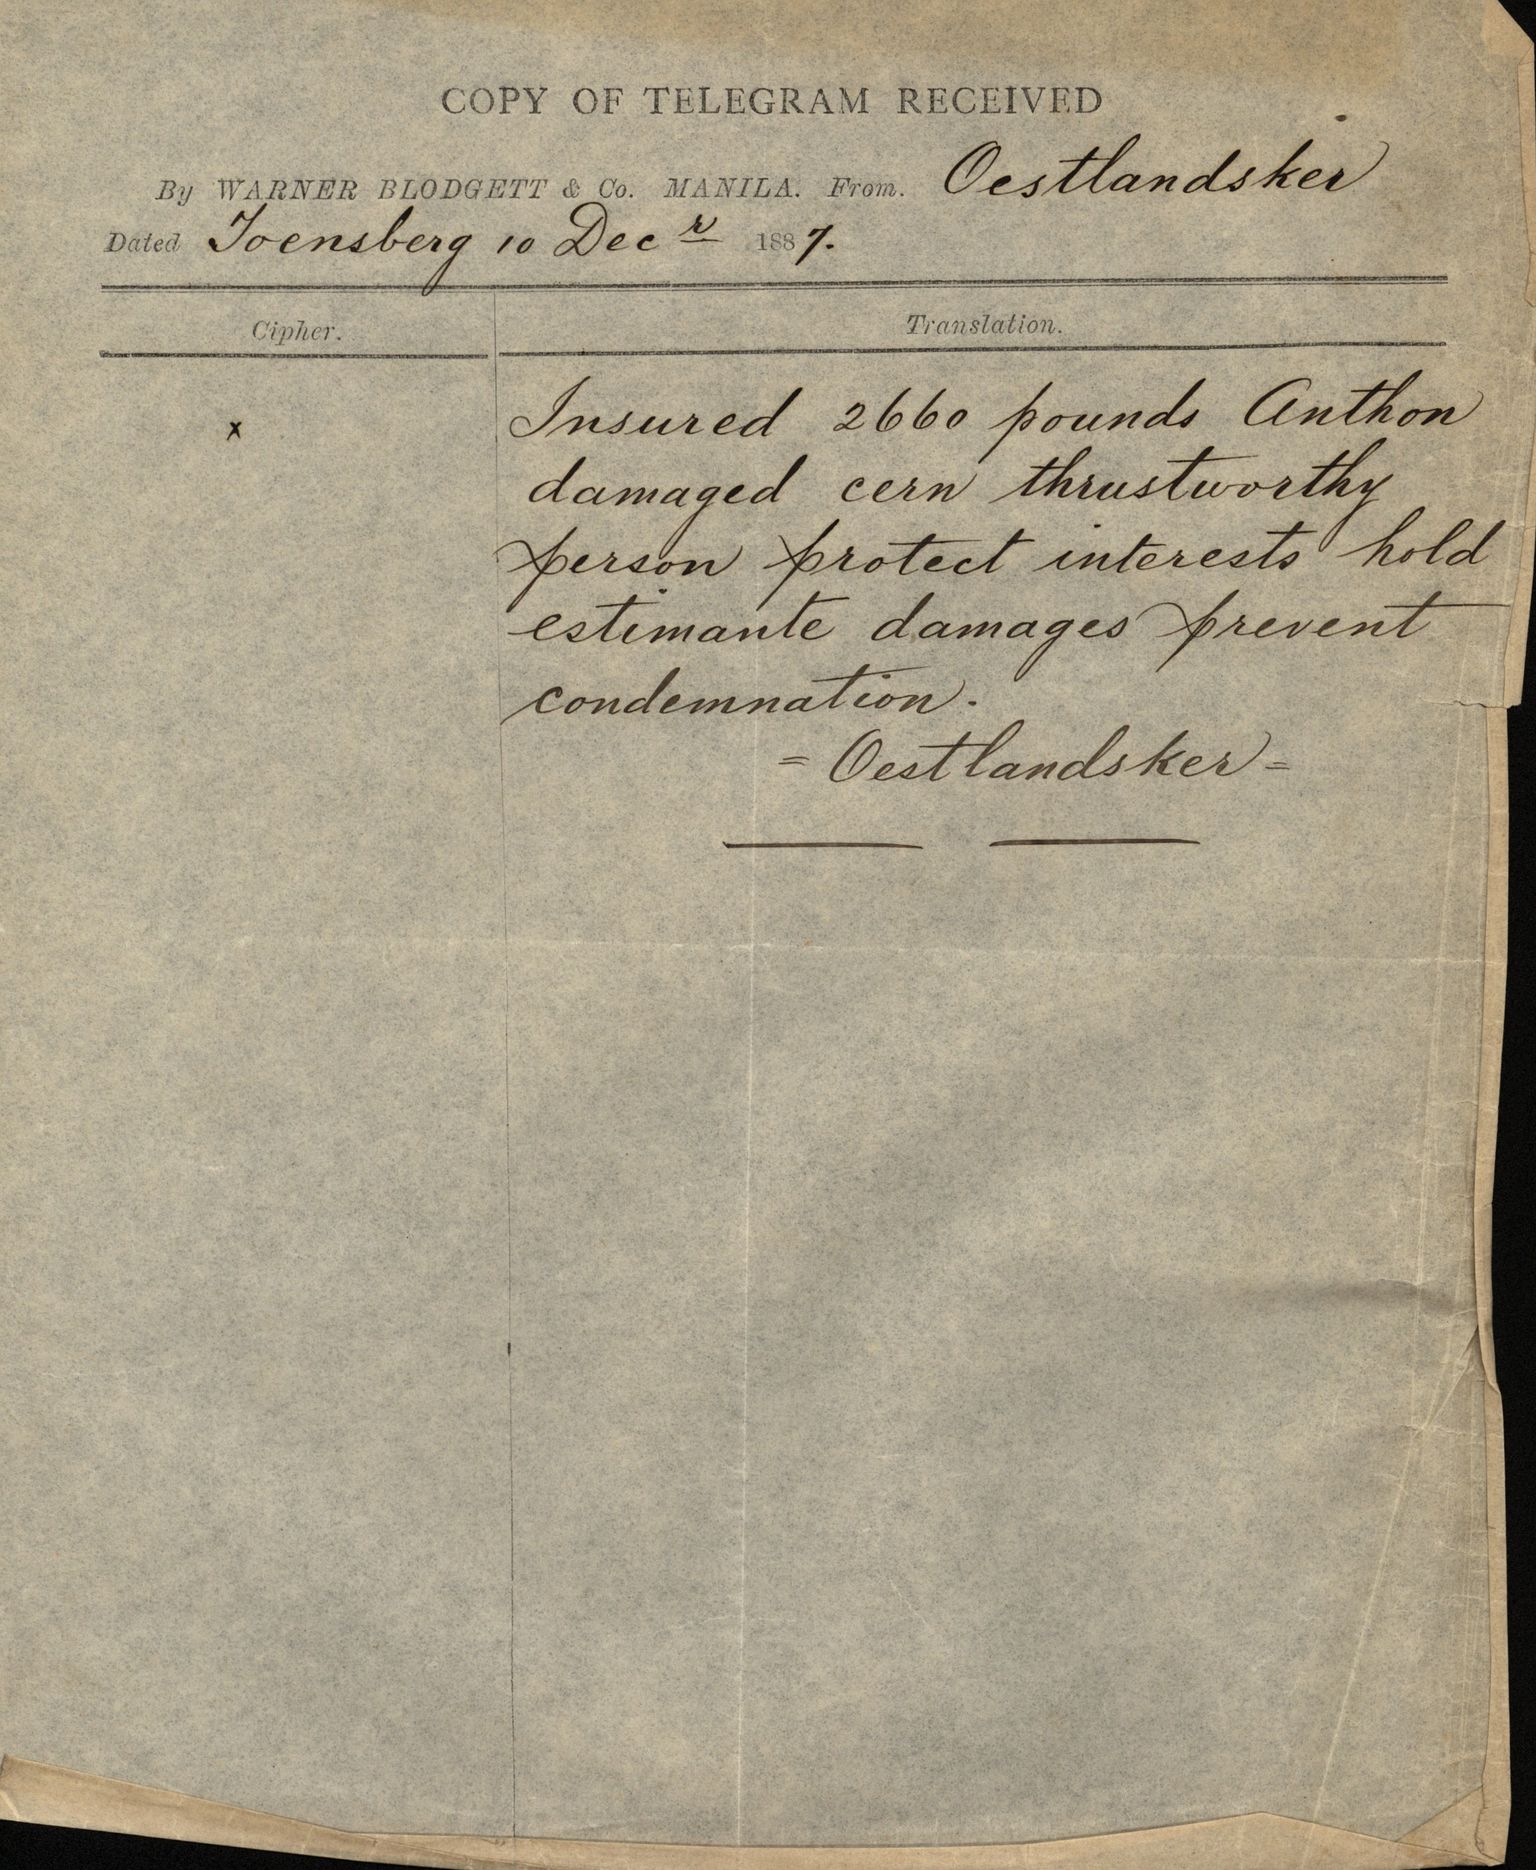 COPY OF TELEGRAM RECEIVED
By WARNER BLODGETT & Co. MANILA. From. Oestlandsker
Dated Toensberg 10 Decr 1887.
Cipher. Translation.
x Insured 2660 pounds Anthon
damaged cern thrustworthy
person protect interests hold
estimante damages prevent
condemnation.
= Oestlandsker =